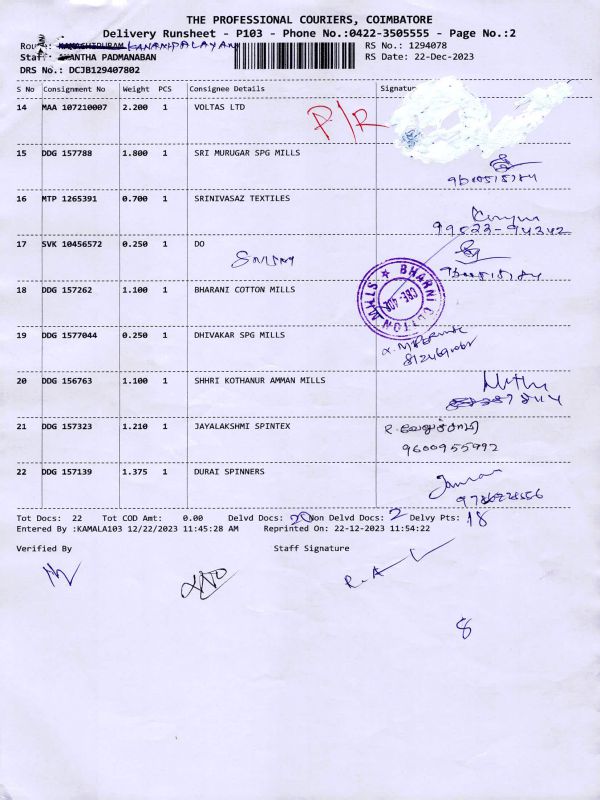 THE PROFESSIONAL COURIERS, COIMBATORE
Delivery Runsheet - P103 - Phone No.:0422-3505555 - Page No.:2
KANAMPALAYAM
RS No.: 1294078
PADMANABAN
RS Date: 22-Dec-2023
DRS No.: DCJB129407802
S No Consignment No Weight PCS Consignee Details Signature
14 MAA 107210007 2.200 1 VOLTAS LTD
P/R
15 DDG 157788 1.800 1 SRI MURUGAR SPG MILLS
16 MTP 1265391 0.700 1 SRINIVASAZ TEXTILES
99523-94342
17 SVK 10456572 0.250 1 DO
18 DDG 157262 1.100 1 BHARANI COTTON MILLS
BHARNI COTTON MILLS
CBE-402
19 DDG 1577044 0.250 1 DHIVAKAR SPG MILLS
20 DDG 156763 1.100 1 SHHRI KOTHANUR AMMAN MILLS
21 DDG 157323 1.210 1 JAYALAKSHMI SPINTEX
9600955992
22 DDG 157139 1.375 1 DURAI SPINNERS
Tot Docs: 22 Tot COD Amt: 0.00 Delvd Docs: 20 Non Delvd Docs: 2 Delvy Pts: 18
Entered By :KAMALA103 12/22/2023 11:45:28 AM Reprinted On: 22-12-2023 11:54:22
Verified By Staff Signature
8